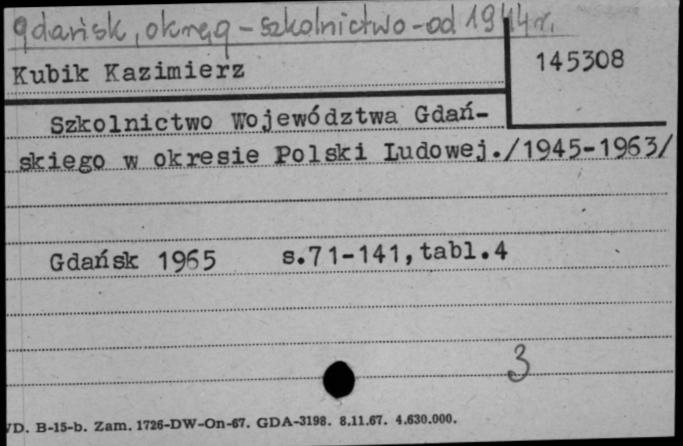 gdańsk, okręg - szkolnictwo - od 1944 r.
Kubik Kazimierz
145308
Szkolnictwo Województwa Gdań-
skiego w okresie Polski Ludowej./1945-1963/
Gdańsk 1965 s.71-141,tabl.4
3
D. B-15-b. Zam. 1726-DW-On-67. GDA-3198. 8.11.67. 4.630.000.